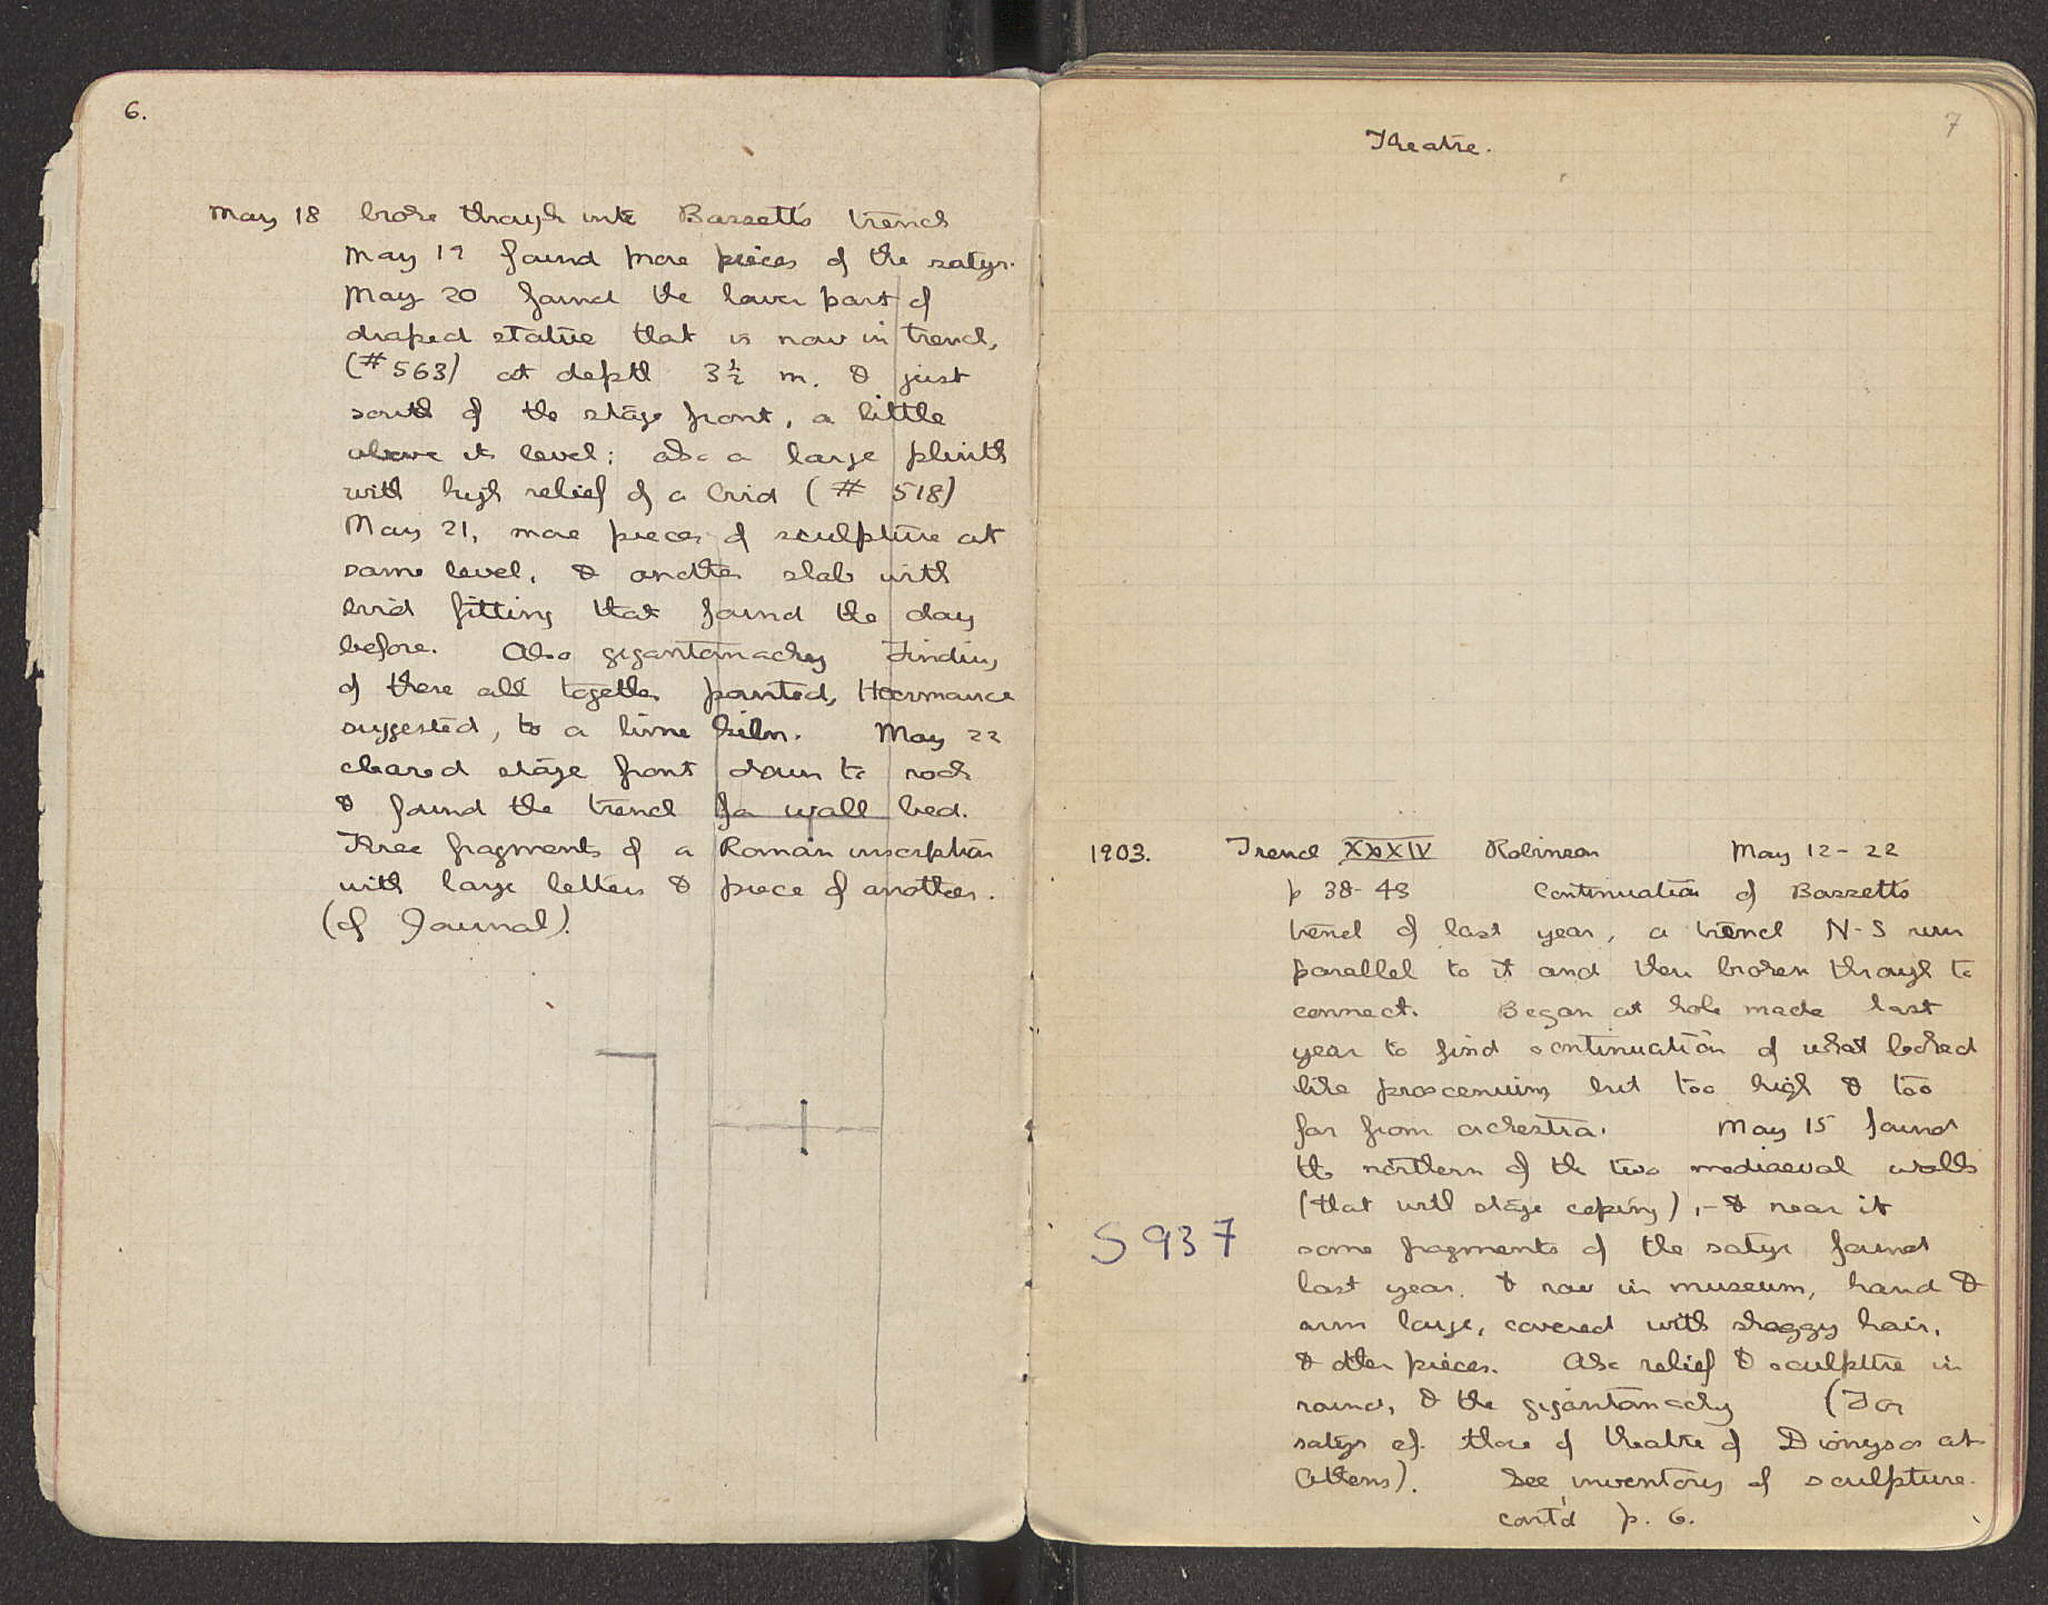 6.
May 18 broke through into Bassett's trench
May 19 found more pieces of the satyr.
May 20 found the lower part of
draped statue that is now in trench,
(#563) at depth 3½ m. & just
south of the stage front, a little
above its level: also a large plinth
with high relief of a bird (# 518)
May 21, more pieces of sculpture at
same level, & another slab with
bird fitting that found the day
before. Also gigantomachy Finding
of these all together pointed, Heermance
suggested, to a lime kiln. May 22
cleared stage front down to rock
& found the trench for wall bed.
Three fragments of a Roman inscription
with large letters & piece of another.
(cf Journal).
7
Theatre.
1903. Trench XXXIV Robinson May 12-22
p 38-43 Continuation of Bassett's
trench of last year, a trench N-S run
parallel to it and then broken through to
connect. Began at hole made last
year to find continuation of what looked
like proscenium, but too high & too
far from orchestra. May 15 found
the northern of the two mediaeval walls
(that with stage coping), - & near it
S 937
some fragments of the satyr found
last year, & now in museum, hand &
arm large, covered with shaggy hair,
& other pieces. Also relief & sculpture in
round, & the gigantomachy (For
satyr cf. those of theatre of Dionysos at
Athens). See inventory of sculpture.
cont'd p. 6.